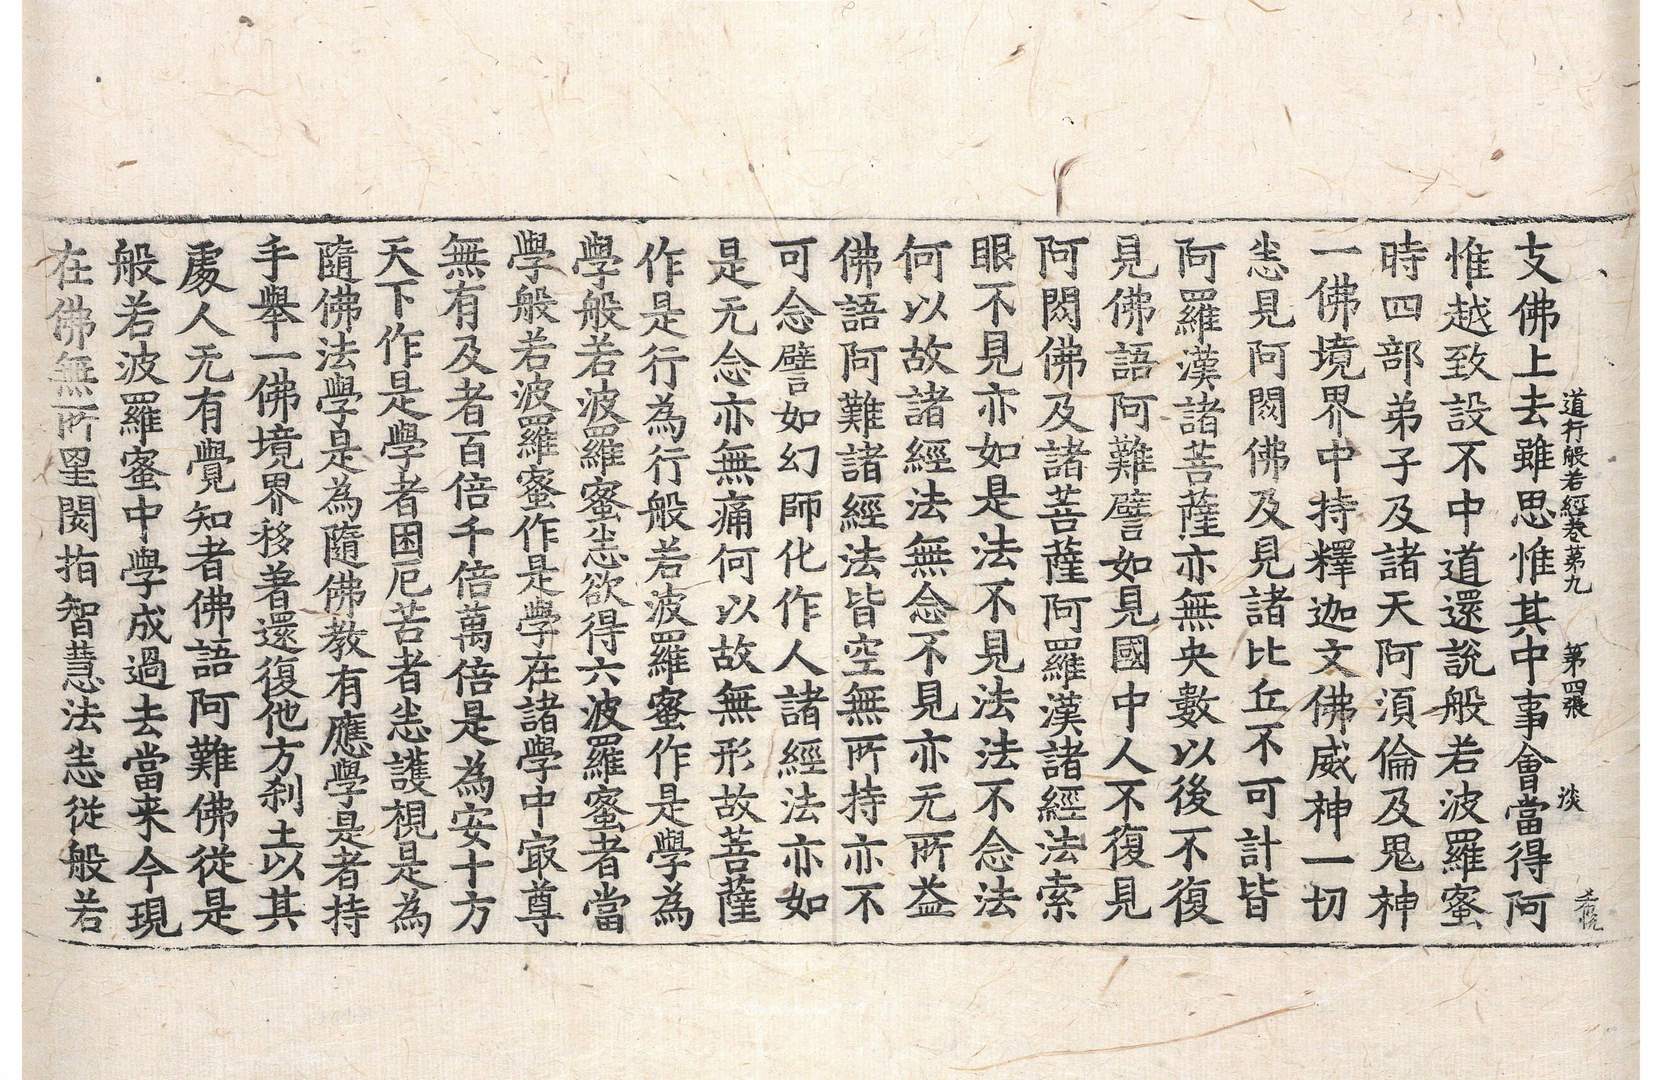 道行般若經卷第九　第四張　淡
支佛上去雖思惟其中事會當得阿
惟越致設不中道還說般若波羅蜜
時四部弟子及諸天阿須倫及鬼神
一佛境界中持釋迦文佛威神一切
悉見阿閦佛及見諸比丘不可計皆
阿羅漢諸菩薩亦無央數以後不復
見佛語阿難譬如見國中人不復見
阿閦佛及諸菩薩阿羅漢諸經法索
眼不見亦如是法不見法法不念法
何以故諸經法無念不見亦无所益
佛語阿難諸經法皆空無所持亦不
可念譬如幻師化作人諸經法亦如
是无念亦無痛何以故無形故菩薩
作是行為行般若波羅蜜作是學為
學般若波羅蜜悉欲得六波羅蜜者當
學般若波羅蜜作是學在諸學中㝡尊
無有及者百倍千倍萬倍是為安十方
天下作是學者困厄苦者悉護視是為
隨佛法學是為隨佛教有應學是者持
手舉一佛境界移著還復他方剎土以其
處人无有覺知者佛語阿難佛從是
般若波羅蜜中學成過去當来今現
在佛無所罣閡指智慧法悉從般若